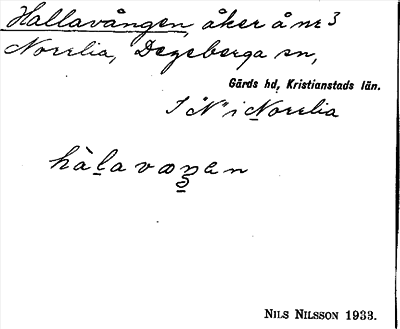 Hallavången, åker å nr 3
Norrlia, Degeberga sn,
Gärds hd, Kristianstads län.
I "N" i Norrlia
NILS NILSSON 1933.